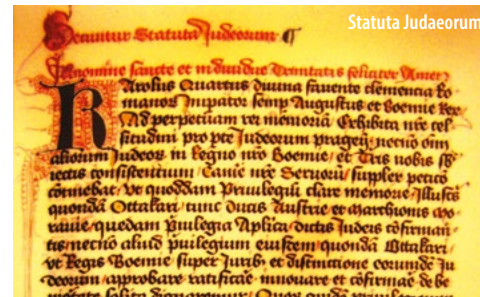 Statuta Judaeorum
Secuntur Statuta Judeorum
In nomine sancte et individue Trinitatis feliciter Amen
Karolus Quartus divina favente clementia Ro
manor Imperator semp Augustus et Boemie Rex
Ad perpetuam rei memoriam Exhibita nre cel
situdini pro pte Judeorum pragen necno oim
aliorum Judeor in Regno nro Boemie et Tris nobis sb
iectis consistentium Camere nre Servoru supplex peticio
continebat ut quoddam Privilegiu clare memorie Illustis
quonda Ottakari tunc ducis Austrie et Marchionis mo
ravie quedam privilegia Aplica dictis Judeis cofirman
tis necno aliud privilegium eiusdem quonda Ottakari
ut Regis Boemie super Jurib et distinctione eorunde Ju
deorum approbare ratificare innovare et cofirmare de be